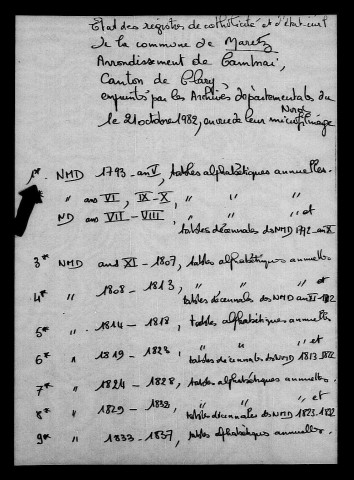 Etat des registres de catholicité et d'état-civil
de la commune de Maretz
Arrondissement de Cambrai,
Canton de Clary,
empruntés par les Archives départementales du
Nord
le 21 octobre 1982, en vue de leur microfilmage
1* NMD 1793 - an V, tables alphabétiques annuelles.
" ans VI, IX-X, " "
ND ans VII-VIII, " " et
tables décennales des NMD 1792-an X
3* NMD ans XI - 1807, tables alphabétiques annuelles
4* " 1808 - 1813, " " et
tables décennales des NMD an XI-1812
5* " 1814 - 1818, tables alphabétiques annuelles
6* " 1819 - 1823, " " et
tables décennales des NMD 1813-1822
7* " 1824 - 1828, tables alphabétiques annuelles.
8* " 1829 - 1832, " " et
tables décennales des NMD 1823-1832
9* " 1833 - 1837, tables alphabétiques annuelles.